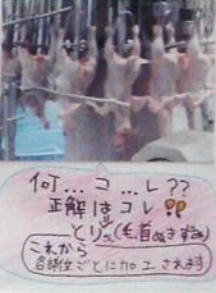 何...コ...レ??
正解はコレ!!
とりさん(毛首ぬきずみ)
これから
各部位ごとに加工されます